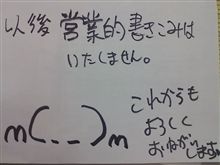 以後営業的書きこみは
いたしません。
m(_ _)m
これからも
よろしく
おねがいします。